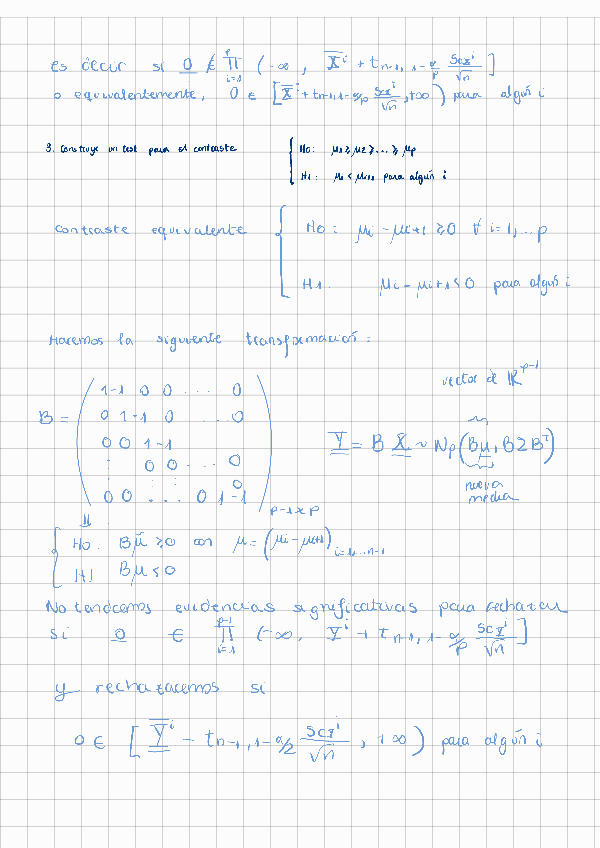 es decir si 0 ∉ ∏_{i=1}^{p} (-∞, X̄^i + t_{n-1, 1-α/p} Scx^i/√n]
o equivalentemente, 0 ∈ [X̄^i + t_{n-1, 1-α/p} Scx^i/√n, +∞) para algún i
3. Construye un test para el contraste { H0: μ1 ≥ μ2 ≥ ... ≥ μp
H1: μi < μi+1 para algún i
contraste equivalente { H0: μi - μi+1 ≥ 0 ∀ i=1,...p
H1. μi - μi+1 < 0 para algús i
Hacemos la siguiente transformación:
vector de ℝ^{p-1}
B = ( 1 -1 0 0 .... 0
0 1 -1 0 ... 0
0 0 1 -1
: 0 0 .... 0
: : : 0
0 0 ... 0 1 -1 )_{p-1xp}
Y = B X ~ Np (Bμ, BΣB^T)
nueva
media
⇓
{ H0: Bμ ≥ 0 con μ = (μi - μi+1)_{i=1...n-1}
H1 Bμ < 0
No tendremos evidencias significativas para rechazar
si 0 ∈ ∏_{i=1}^{p-1} (-∞, Y^i + t_{n-1, 1-α/p} Scy^i/√n]
y rechazaremos si
0 ∈ [Ȳ^i - t_{n-1, 1-α/2} Scy^i/√n, +∞) para algún i